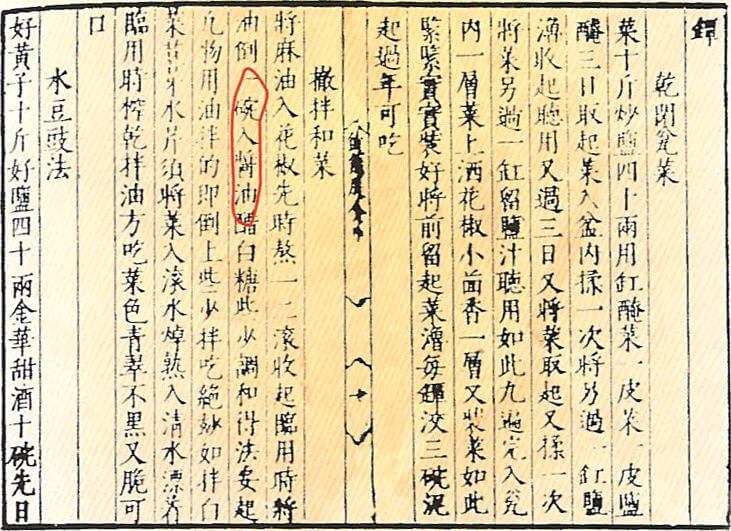 鐔
乾閉瓮菜
菜十斤炒鹽四十兩用缸醃菜一皮菜一皮鹽
醃三日取起菜入盆内揉一次將另過一缸鹽
滷收起聽用又過三日又將菜取起又揉一次
將菜另過一缸留鹽汁聽用如此九遍完入瓮
内一層菜上洒花椒小茴香一層又裝菜如此
緊緊實實裝好將前留起菜滷每鐔澆三碗泥
起過年可吃
撤拌和菜
將麻油入花椒先時熬一二滾收起臨用時將
油倒一碗入醬油醋白糖些少調和得法安起
凡物用油拌的即倒上些少拌吃絶妙如拌白
菜荳芽水芹須將菜入滾水焯熟入清水漂着
臨用時榨乾拌油方吃菜色青翠不黑又脆可
口
水豆豉法
好黄子十斤好鹽四十兩金華甜酒十碗先日